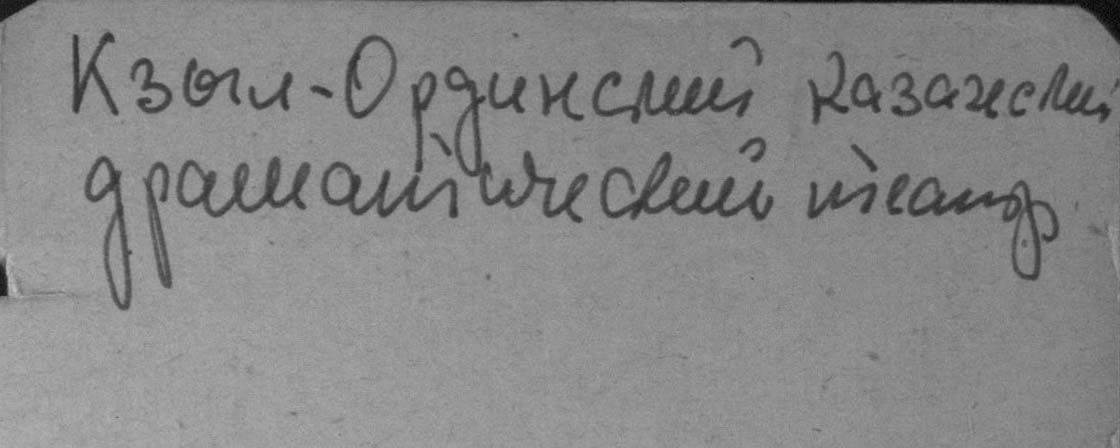 Кзыл-Ординский казахский
драматический театр